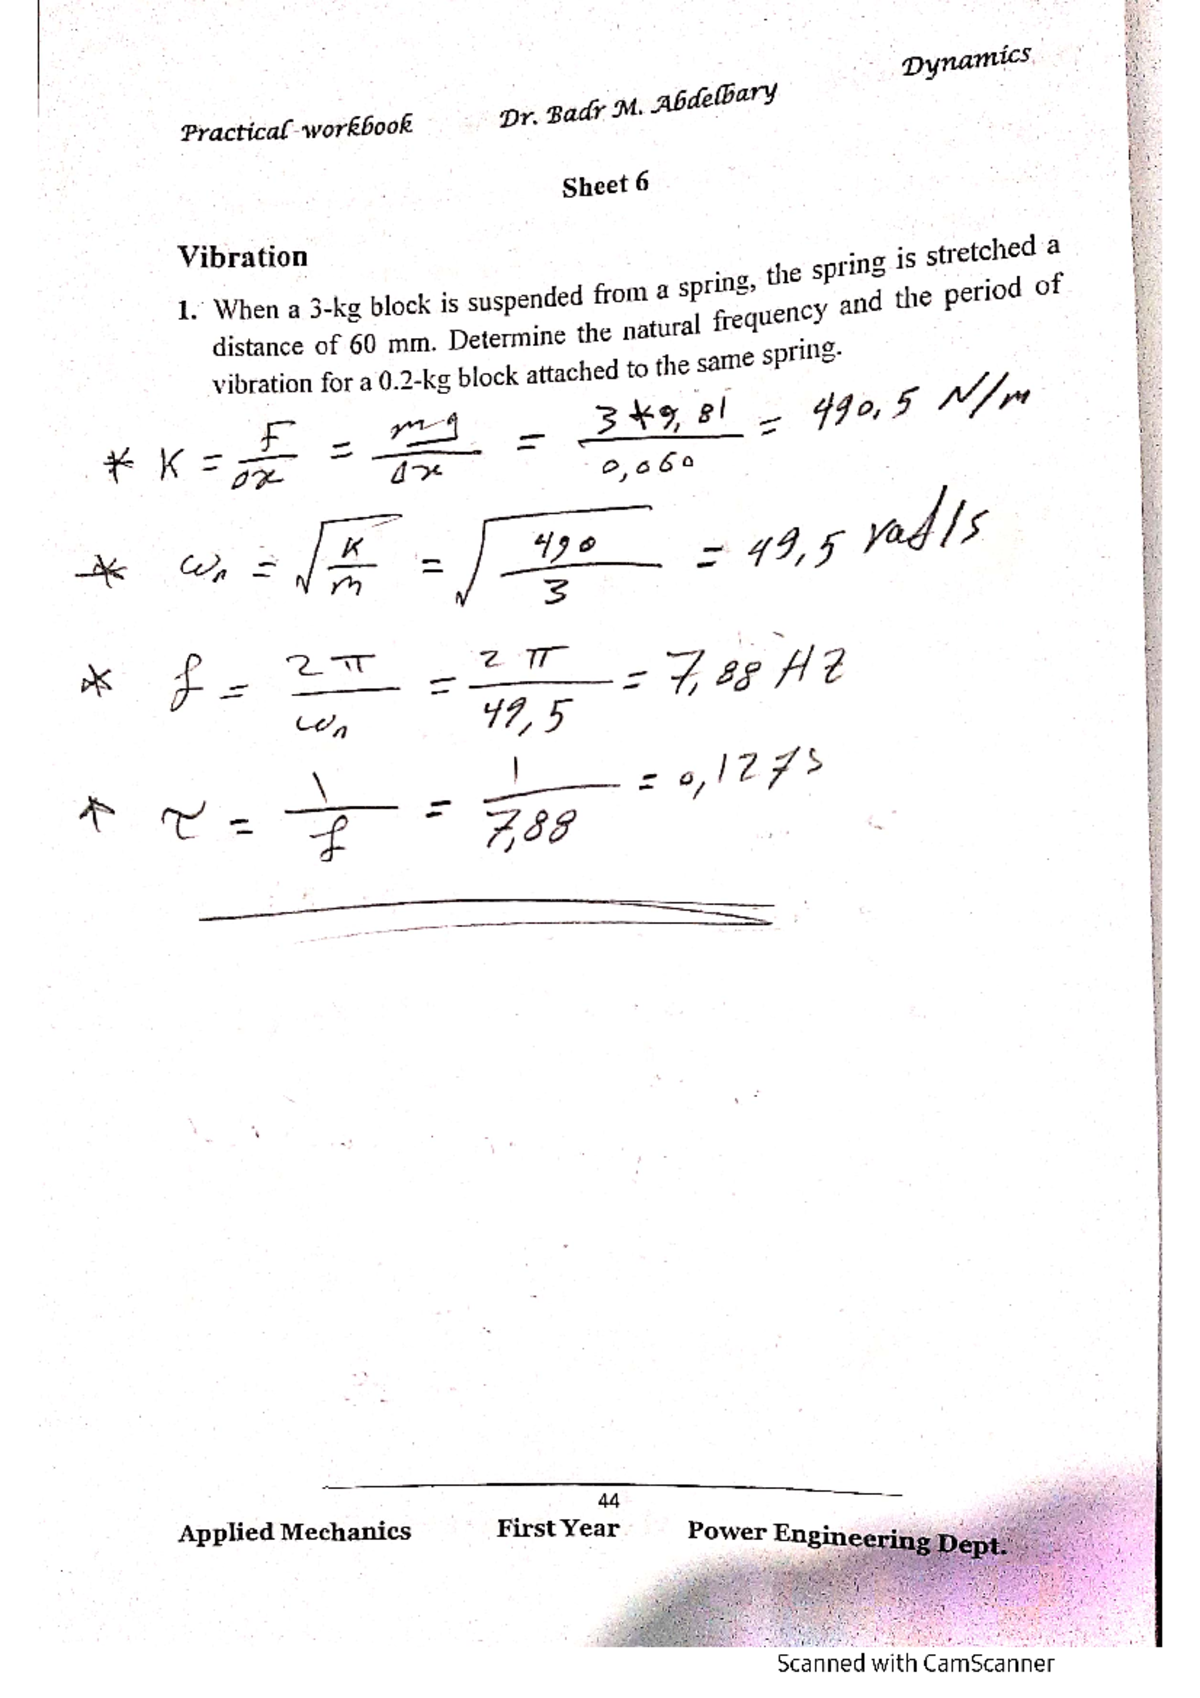 Dynamics
Practical workbook Dr. Badr M. Abdelbary
Sheet 6
Vibration
1. When a 3-kg block is suspended from a spring, the spring is stretched a
distance of 60 mm. Determine the natural frequency and the period of
vibration for a 0.2-kg block attached to the same spring.
* K = F/Δx = mg/Δx = 3*9,81/0,060 = 490,5 N/m
* ωn = √(K/m) = √(490/3) = 49,5 rad/s
* f = 2π/ωn = 2π/49,5 = 7,88 HZ
* τ = 1/f = 1/7,88 = 0,127s
44
Applied Mechanics First Year Power Engineering Dept.
Scanned with CamScanner